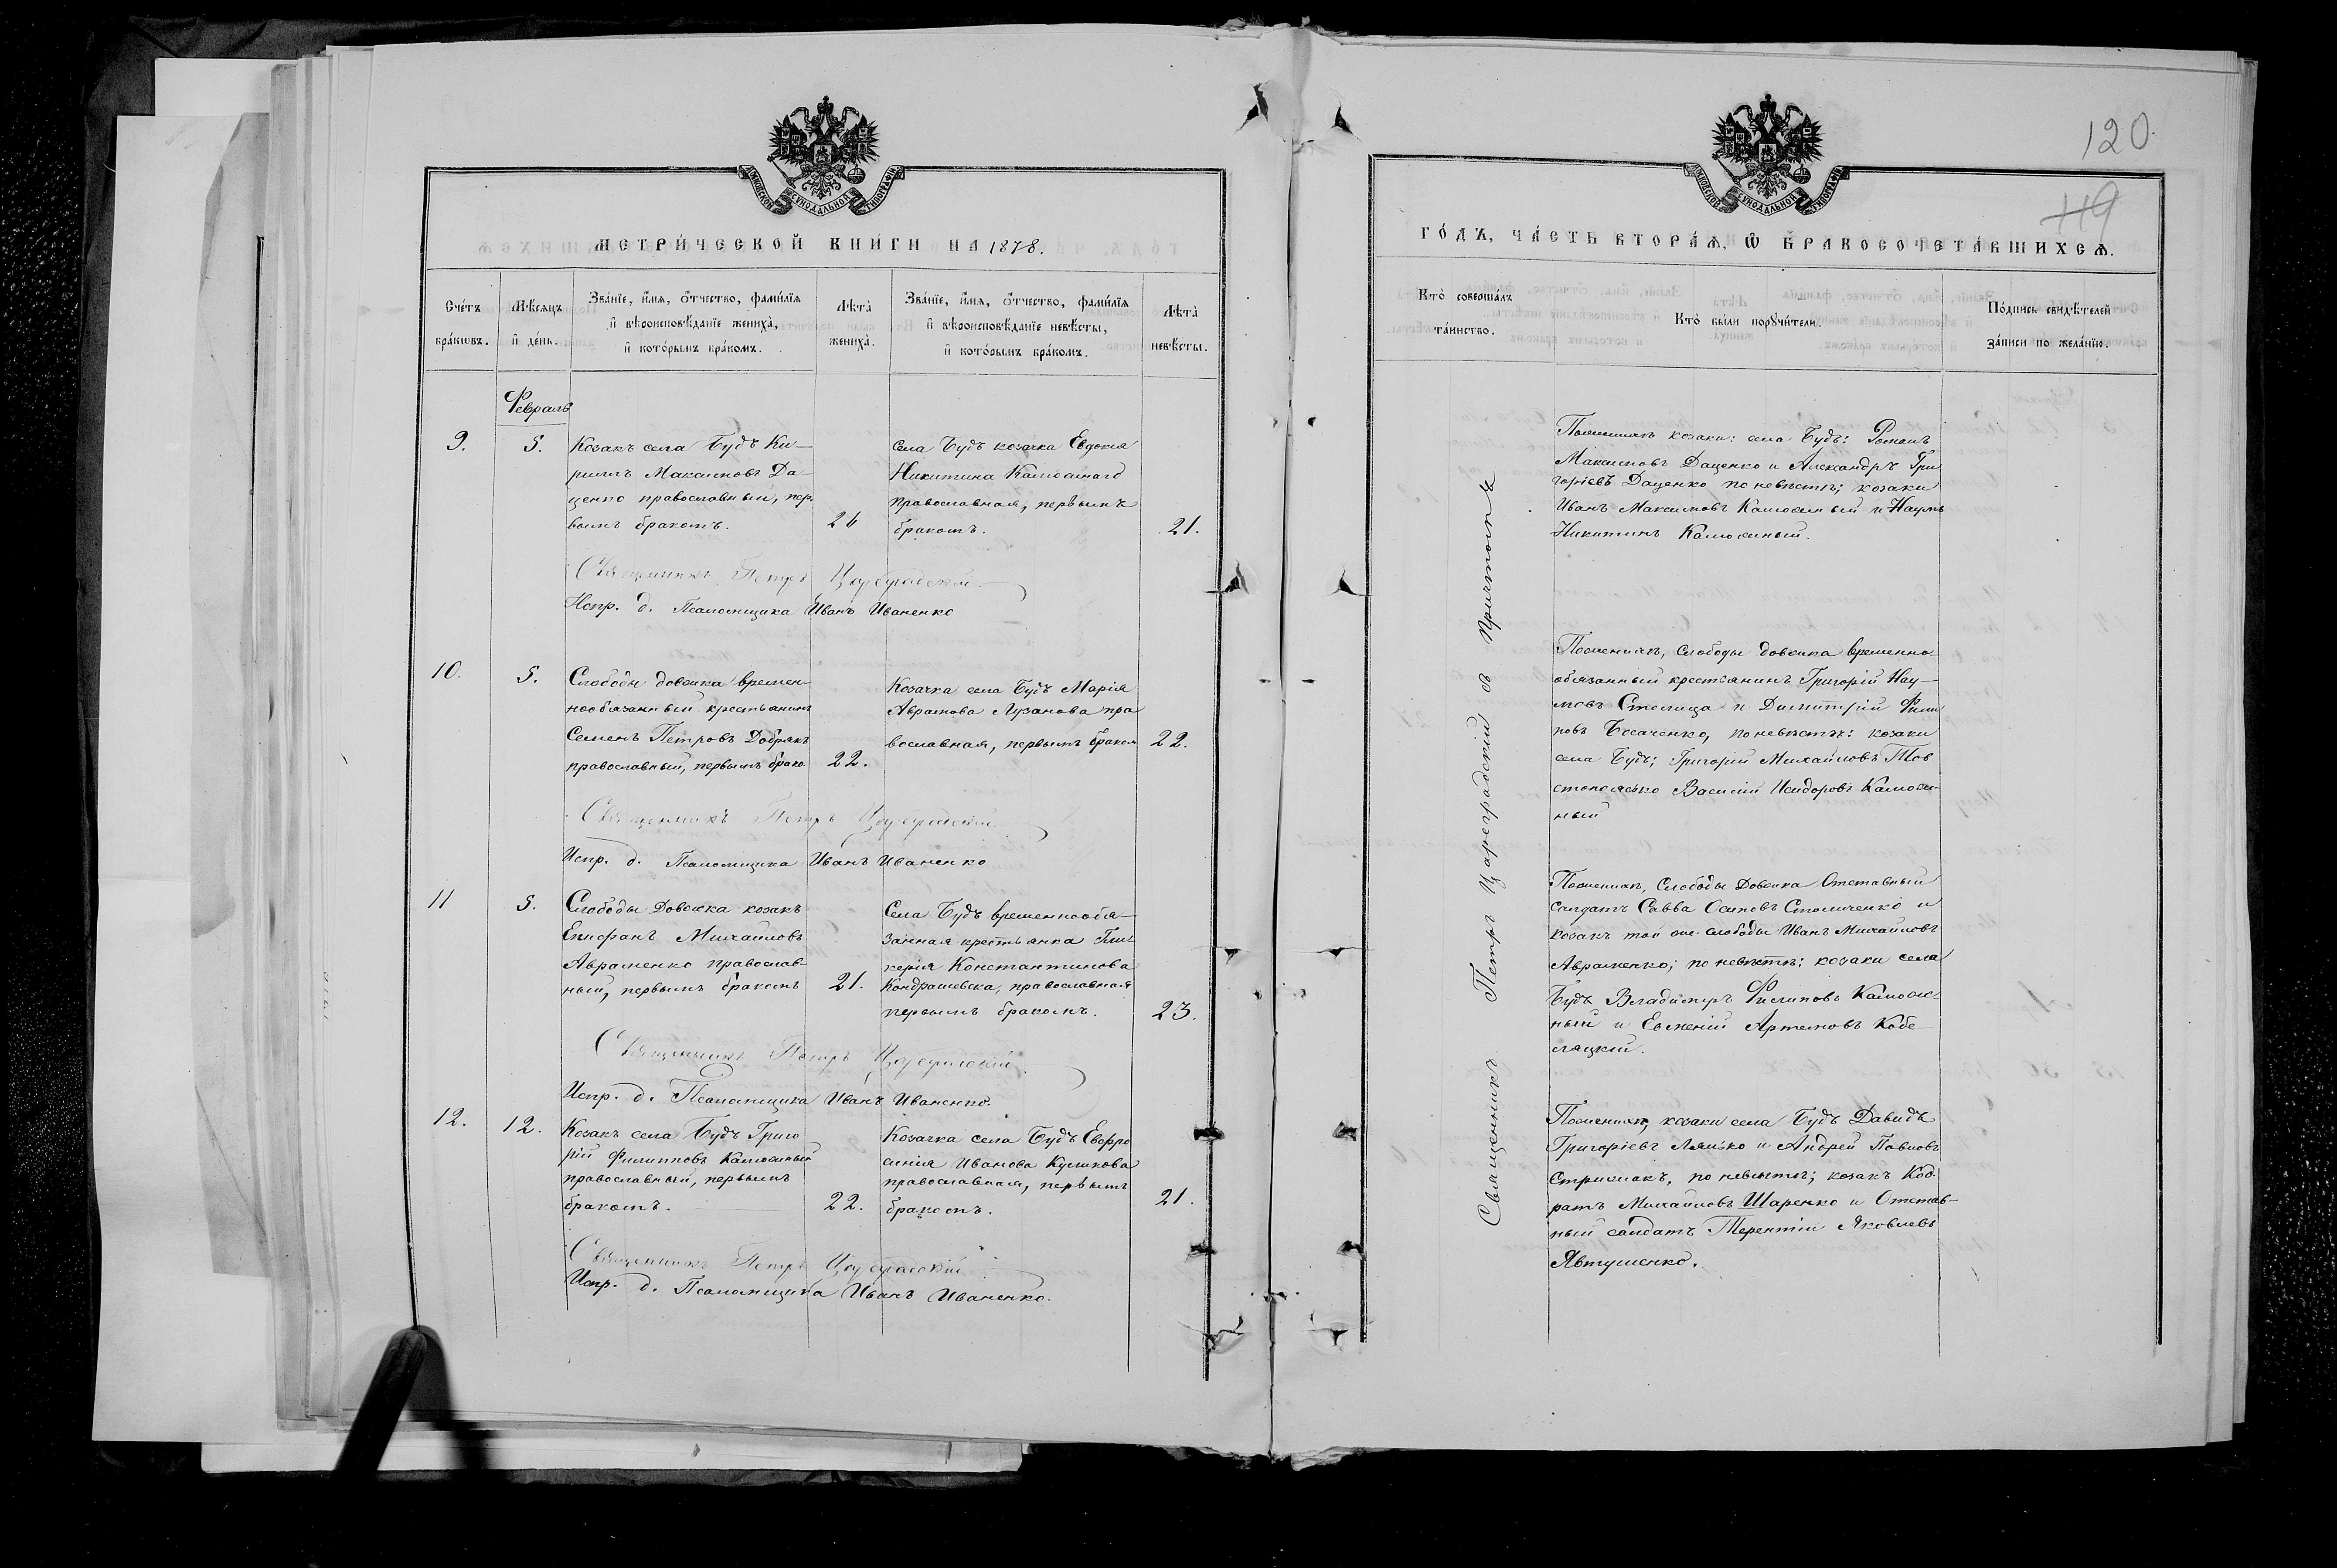 МОСКОВСКОЙ СУНОДАЛЬНОЙ ТИПОГРАФІИ
МЕТРИ́ЧЕСКОЙ КНИ́ГИ НА 1878.
Сче́тъ бра́ковъ.
Мѣ́сяцъ и҆ де́нь.
Зва́нїе, и҆́мя, ѻ҆́тчество, фами́лїя
и҆ вѣроисповѣ́данїе жениха̀,
и҆ кото́рымъ бра́комъ.
Лѣта̀ жениха̀.
Зва́нїе, и҆́мя, ѻ҆́тчество, фами́лїя
и҆ вѣроисповѣ́данїе невѣ́сты,
и҆ кото́рымъ бра́комъ.
Лѣта̀ невѣ́сты.
Февраль
9.
5.
Козакъ села Будъ Ки-
риллъ Максимовъ Да-
ценко православный, пер-
вымъ бракомъ.
26
Села Будъ козачка Евдокія
Никитина
православная, первымъ
бракомъ.
21.
Священникъ Петръ Цареградскій
Испр. д. Псаломщика Иванъ Иваненко
10.
5.
Слободы Довжика времен-
нообязанный крестьянинъ
Семенъ Петровъ Добрякъ
православный, первымъ брако
22.
Козачка села Будъ Марія
Аврамова Лузанова пра
вославная, первымъ браком
22.
Священникъ Петръ Цареградскій
Испр. д. Псаломщика Иванъ Иваненко
11
5.
Слободы Довжика козакъ
Епифанъ Михайловъ
Авраменко православ-
ный, первымъ бракомъ
21.
Села Будъ временнообя-
занная крестьянка Гли
керія Константинова
православная
первымъ бракомъ.
23.
Священникъ Петръ Цареградскій
Испр. д. Псаломщика Иванъ Иваненко.
12.
12.
Козакъ села Будъ Григо
рій Филипповъ Калюжный
православный, первымъ
бракомъ.
22.
Козачка села Будъ Евфро
синія Иванова Куликова
православная, первымъ
бракомъ.
21.
Священникъ Петръ Цареградскій
Испр. д. Псаломщика Иванъ Иваненко.
120.
119
МОСКОВСКОЙ СУНОДАЛЬНОЙ ТИПОГРАФІИ
ГО́ДЪ, ЧА́СТЬ ВТОРА́Ѧ, Ѡ҆ БРАКОСОЧЕТА́ВШИХСѦ.
Кто̀ соверша́лъ
та́инство.
Кто̀ бы́ли порꙋчи́тели.
По́дпись свидѣ́телей
за́писи по жела́нїю.
Священникъ Петръ Цареградскій съ Причтомъ
По женихѣ козаки: села Будъ: Романъ
Максимовъ Даценко и Александръ Гри
горіевъ Даценко по невѣстѣ; козаки
Иванъ Максимовъ Калюжный и Наумъ
Никитинъ Калюжный.
По женихѣ, Слободы Довжика временно-
обязанный крестьянинъ Григорій Нау-
мовъ Столица и Димитрій Фили
повъ по невѣстѣ: козаки
села Будъ; Григорій Михайловъ Тов
Василій Исидоровъ Калюж-
ный
По женихѣ, Слободы Довжика Отставный
Солдатъ Савва Осиповъ Столиченко и
козакъ той же слободы Иванъ Михайловъ
Авраменко; по невѣстѣ: козаки села
Будъ Владиміръ Филиповъ Калюж-
ный и Евменій Артемовъ Кобе-
ляцкій.
По женихѣ, козаки села Будъ Давидъ
Григоріевъ Ляшко и Андрей Павловъ
Стрижакъ, по невѣстѣ; козакъ Код-
ратъ Михайловъ Шаренко и Отстав-
ный солдатъ Терентій Яковлевъ
Явтушенко.